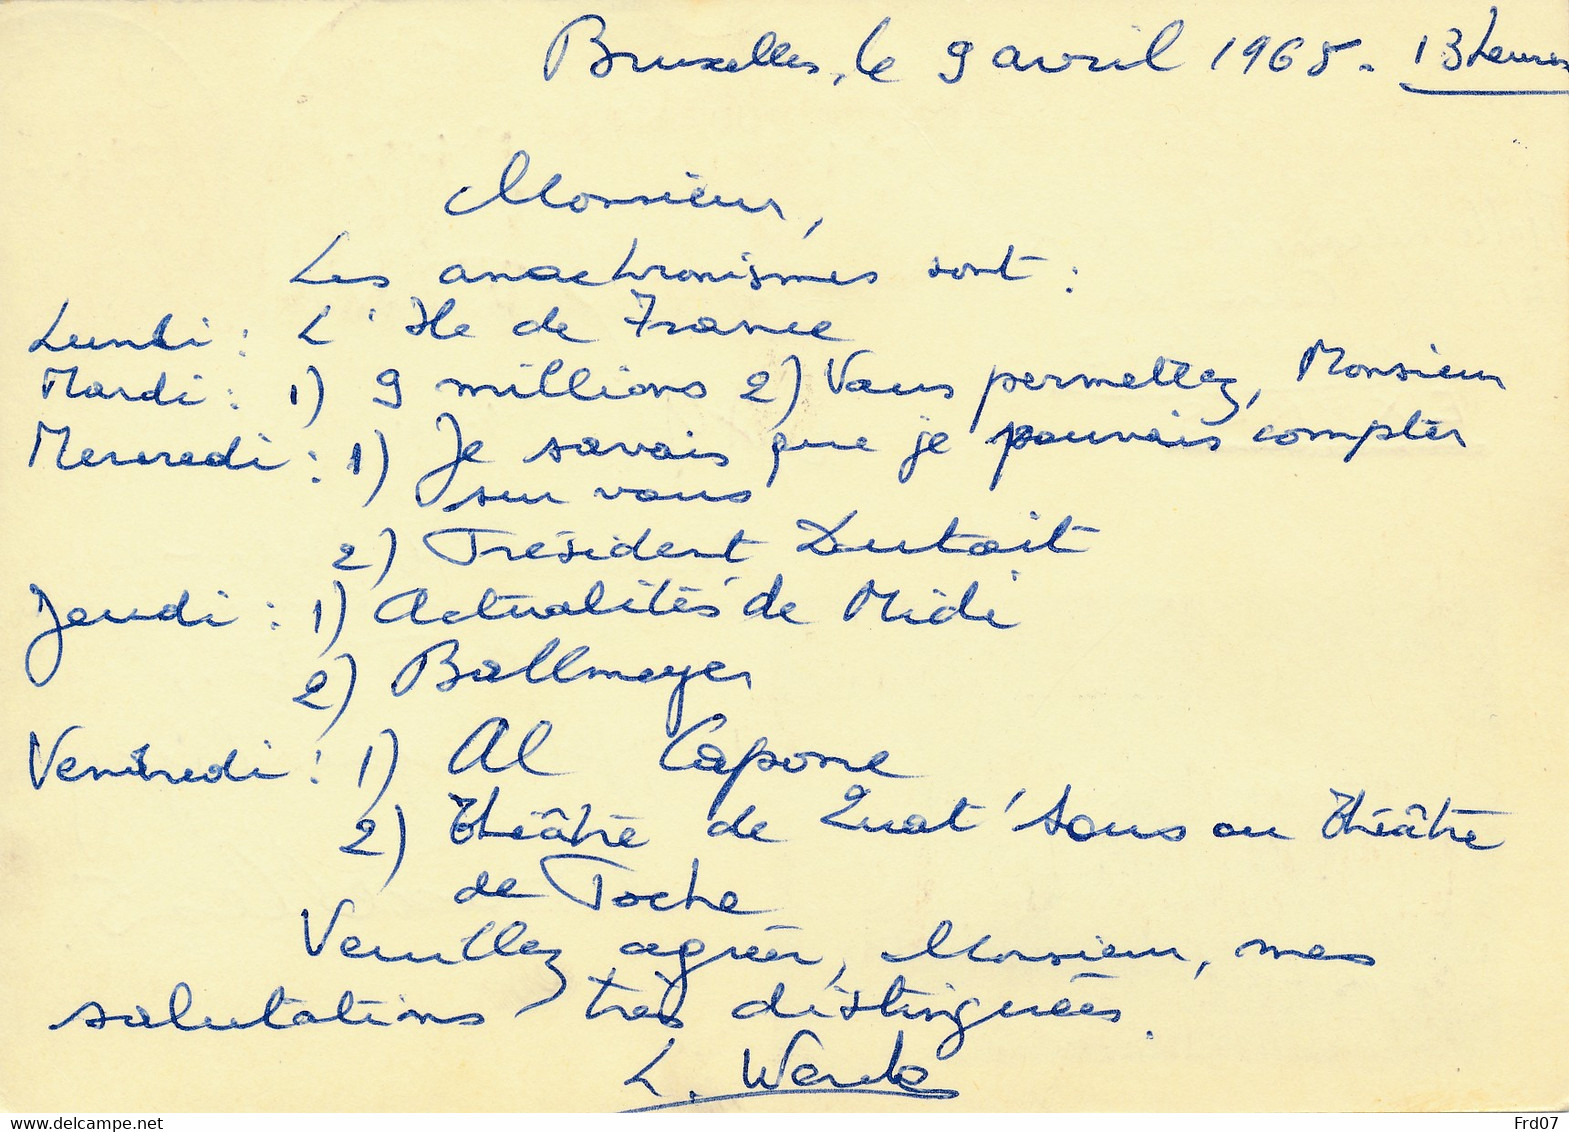 Bruxelles, le 9 avril 1965. 13 heures
Monsieur,
Les anachronismes sont :
Lundi : L'Ile de France
Mardi : 1) 9 millions 2) Vous permettez, Monsieur
Mercredi : 1) Je savais que je pouvais compter
sur vous
2) Président Dutoit
Jeudi : 1) Actualités de Midi
2) Ballmeyer
Vendredi : 1) Al Capone
2) théâtre de Quat'sous ou théâtre
de Poche
Veuillez agréer, Monsieur, mes
salutations très distinguées.
L.
www.delcampe.net
Frd07